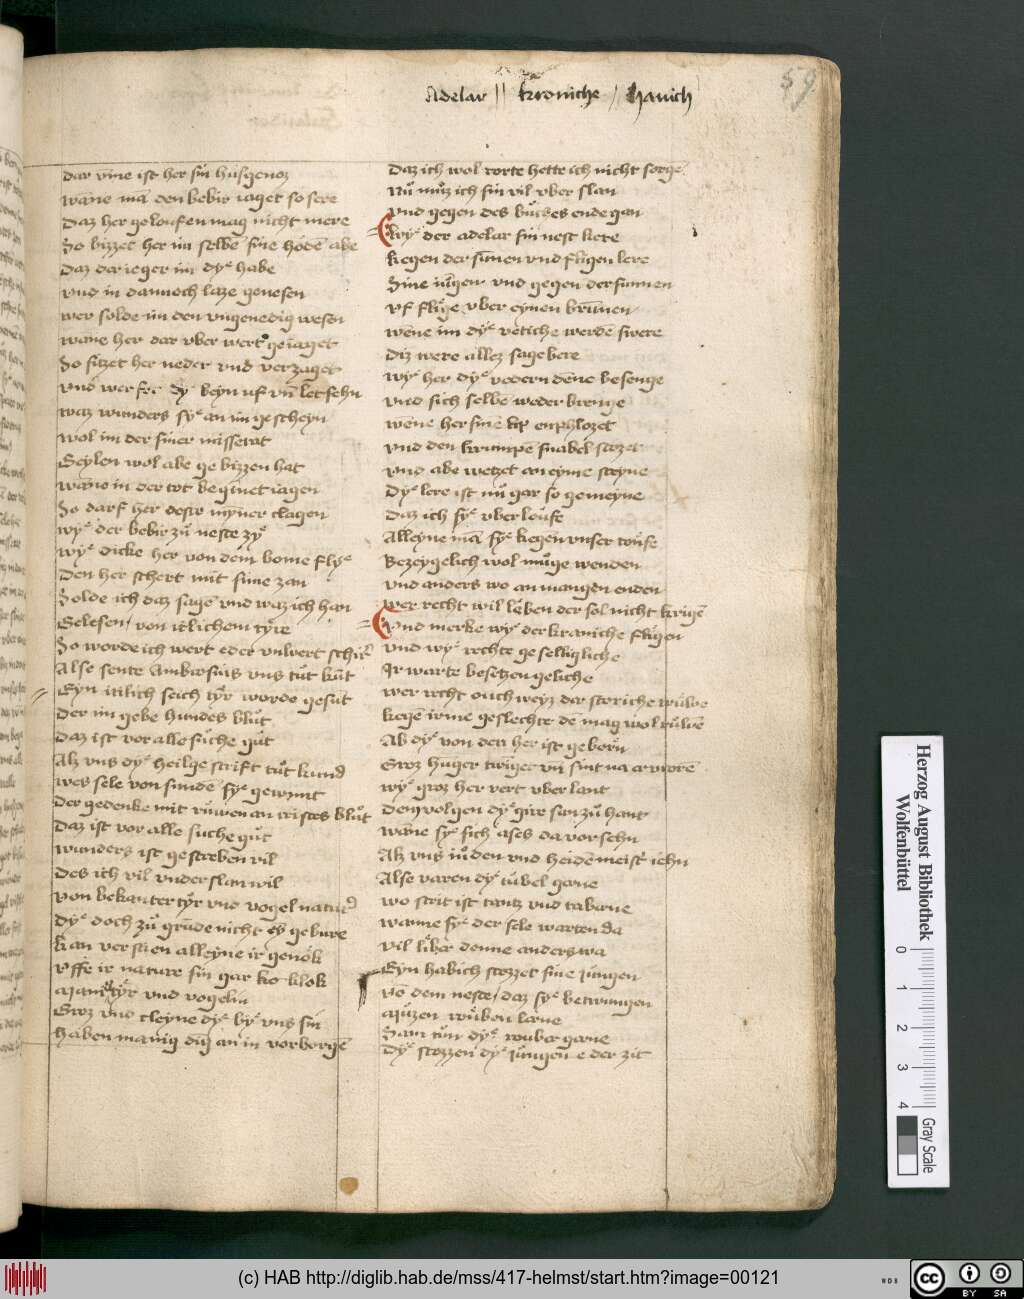 Adelar || kroniche / Havich
59
dar vme ist her sin husgenoz
wane mā den bebir iaget so sere
daz her geloufen mag nicht mere
So bizzet her im selbē sine hodē abe
daz der ieger im dye habe
vnd in dannoch laze genesen
wer solde im den vngenedig wesen
wane her dar vber wert geiaget
So sitzet her neder vnd verzaget
vnd wer dy beyn uf vn let sehn
waz wunders sye an im gescheyn
wol im der siner missetat
Seylen wol abe gebizzen hat
wane in der tot beginet iagen
So darf her myner clagen
wye der bebir zu neste zye
wye dicke her von dem bome flye
den her schert mit sime zan
Solde ich daz sagē vnd waz ich han
Gelesen / von itlichem tyre
So worde ich wert eder vnwert schir
Alse sente Ambrosius vns tut kūt
Eyn itlich seich tyr worde gesūt
der im gebe hundes blut
daz ist vor alle suche gut
Alz vns dye heilge scrift tut kund
wes sele von sundē sye gewunt
der gedenke mit ruwen an cristes blut
daz ist vor alle suche gut
wunders ist gescreben vil
des ich vil vnderslan wil
von bekanter tyr vnd vogel natur
dye doch zu grūde nicht ey gebure
kan versten alleyne ir genok
vffe ir nature sin gar ko klok
Manc tyr vnd vogelin
Groz vnd cleyne dye bye vns sin
haben manig dīg an in vorborgē
daz ich wol rorte hette ich nicht sorge
Nu muz ich sin vil vber slan
vnd gegen des buches ende gan
wye der adelar sin nest kere
kegen der sunnen vnd fligen lere
Sine iungen vnd gegen der sunnen
vf flige vber eynen brunnen
wene im dye vetiche werdē swere
diz were allez sagebere
wye her dye vedern dēne besenge
vnd sich selbe weder brenge
wēne her sine enphlozet
vnd den krumpē snabel stozet
vnd abe wetzet an eyme steyne
dye lere ist nu gar so gemeyne
daz ich sye vber loufe
Alleyne mā sye kegen vnser toufe
Bezeygelich wol muge wenden
vnd anders wo an mangen enden
wer recht wil lebben der sol nicht krigē
vnd merke wye der kraniche fligen
vnd wye rechte geselligliche
Ir warte besetzen geliche
wer recht ouch weyz der storiche
kegē irme geslechte dē mag wol
Ab dye von den her ist geborn
Groz huger twiget vn sint na
wye groz her vert vber lant
dem volgen dye gire sun zu hant
wane sye sich ases da vorsehn
Alz vns iuden vnd heidēmeist iehn
Alse varen dye tuvel gerne
wo strit ist tantz vnd taberne
wanne sye der sele warten da
vil liber denne anderswa
Eyn habich stozzet sine iungen
vo dem neste / daz sye betwungen
Muzen rouben lerne
Sam tun dye rouber gerne
dye stozzen dye jungen e der zit
Herzog August Bibliothek
Wolfenbüttel
0
1
2
3
4
Gray Scale
(c) HAB http://diglib.hab.de/mss/417-helmst/start.htm?image=00121
WDB
cc
BY SA